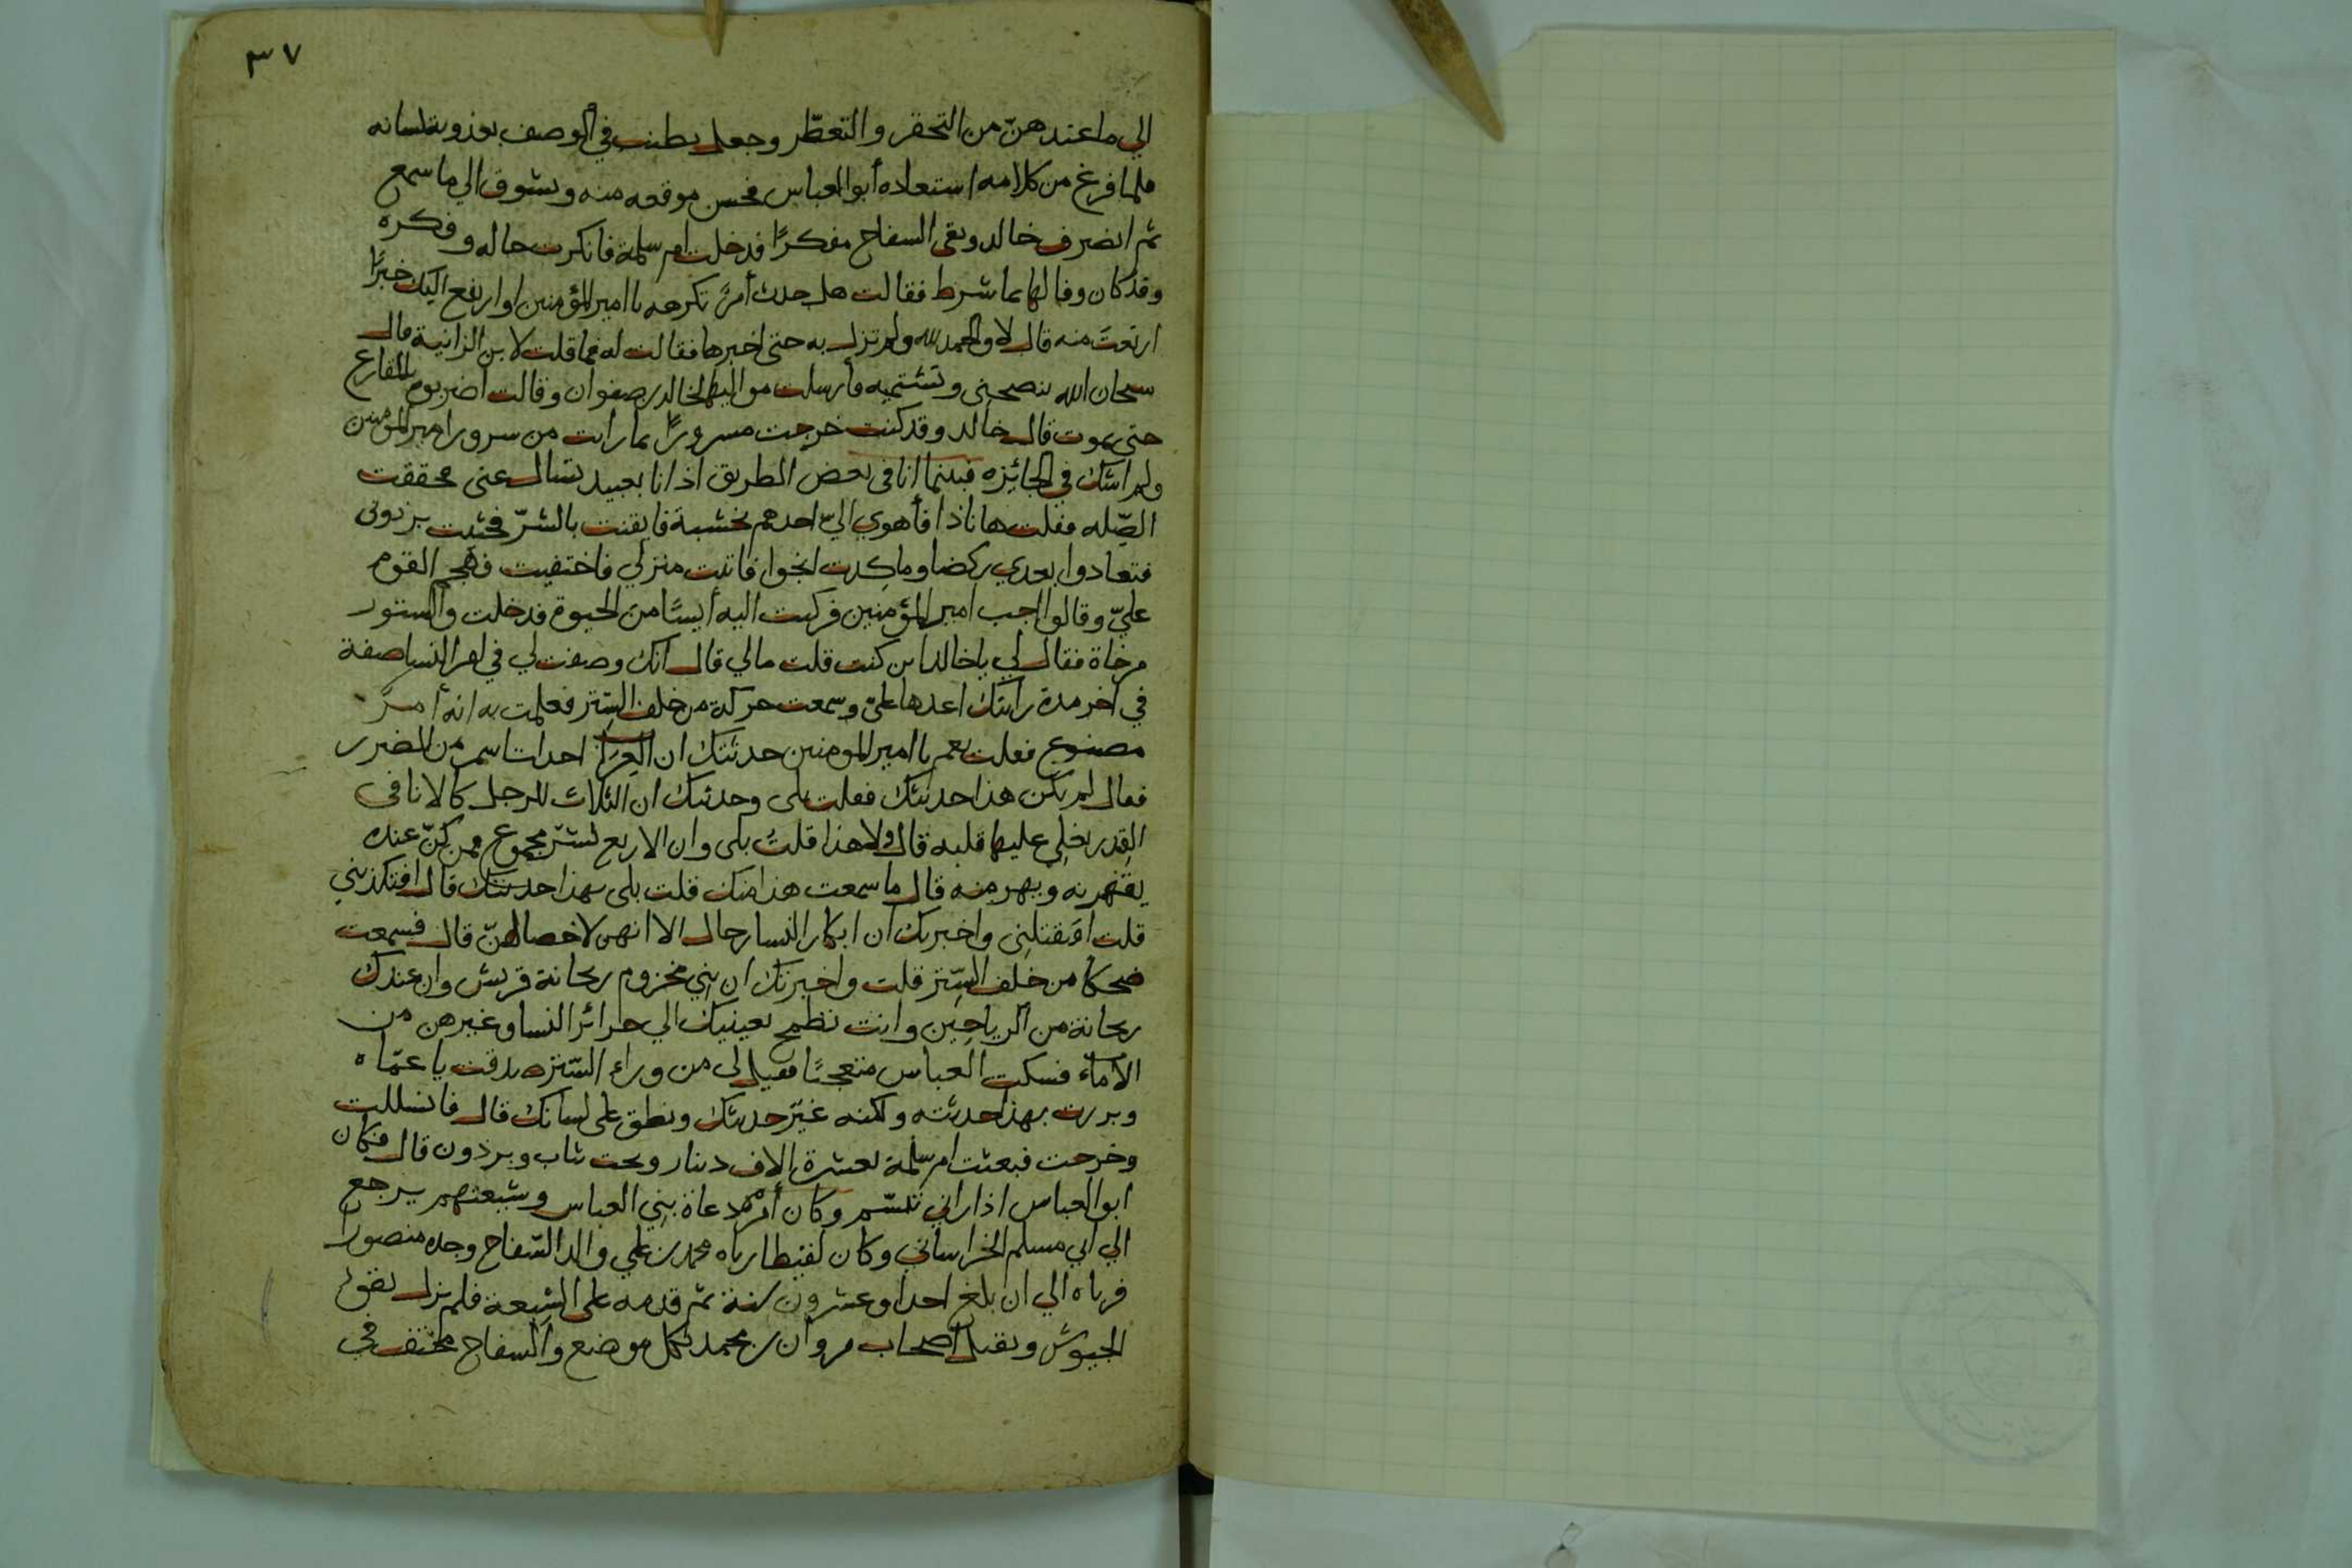 ٣٧
الي ما عندهنّ من التحفر والتعطّر وجعل يطنب في الوصف بعذوبة لسانه
فلما فرغ من كلامه استعاده أبو العباس فحسن موقعه منه وتشوق الي ما سمع
ثم انصرف خالد وبقى السفاح مفكرًا فدخلت ام سلمة فانكرت حاله وفكره
وقد كان وفا لها بما شرط فقالت هل حدث أمرٌ تكرهه يا امير المؤمنين او ارتفع اليك خبرًا
ارتعتَ منه قال لا والحمد لله ولم تزل به حتى اخبرها فقالت له فما قلت لابن الزانية قال
سبحان الله ينصحني وتشتميه فأرسلت مواليها لخالد بن صفوان وقالت اضربوه بالمقارع
حتى يموت قال خالد وقد كنت خرجت مسرورًا بما رأيت من سرور امير المومنين
ولم اشك في الجائزه فبينما انا في بعض الطريق اذ انا بعبيد تسال عنى فحققت
الصّله فقلت ها ناذا فأهوي اليّ احدهم بخشبة فايقنت بالشرّ فحثيت برذونى
فتعادوا بعدي ركضا وما كدت انجوا فاتيت منزلي فاختفيت فهجم القوم
عليّ وقالوا اجب امير المؤمنين فركبت اليه أيسًا من الحيوة فدخلت والستور
مرخاة فقال لي يا خالد اين كنت قلت مالي قال انك وصفت لي في امر النسا صفة
في اخر مدة رايتك اعدها علىّ وسمعت حركة من خلف السِتر فعلمت به انه أمرٌ
مصنوع فقلت نعم يا امير المومنين حدثتك ان العرب اخذت اسم من الضرر
فقال لم يكن هذا حديثك فقلت بلى وحدثتك ان الثلاث للرجل كالاثافي
القِدر يغلي عليها قلبه قال ولا هذا قلتُ بلى وان الاربع لشرّ مجموع لمن كنّ عنده
يقهرنه ويهرمنه قال ما سمعت هذا منك قلت بلى بهذا حدثتك قال افتكذبني
قلت افتقتلنى واخبرتك ان ابكار النسا رجال الا انهن لا خصا لهنّ قال فسمعت
ضحكا من خلف السِّتر قلت واخبرتك ان بني مخزوم ريحانة قريش وان عندك
ريحانة من الرياحين وانت تطمح بعينيك الي حرائر النسا وغيرهن من
الاماء فسكت العباس متعجبًا فقيل لى من وراء السّتر صدقت يا عمّاه
وبررت بهذا حدثته ولكنه غيّر حديثك ونطق على لسانك قال فانسللت
وخرجت فبعثت ام سلمة بعشرة الاف دينار وتحت ثياب وبرذون قال فكان
ابو العباس اذا راني تبسّم وكان أمر دعاة بني العباس وشيعتهم يرجع
الي ابي مسلم الخراساني وكان لقيطا رباه محمد بن علي والد السّفاح وجده منصورا
فرباه الي ان بلغ احدا وعشرون سنة ثم قدمه على الشيعة فلم يزل يقود
الجيوش ويقتل اصحاب مروان بن محمد بكل موضع والسفاح مختف في